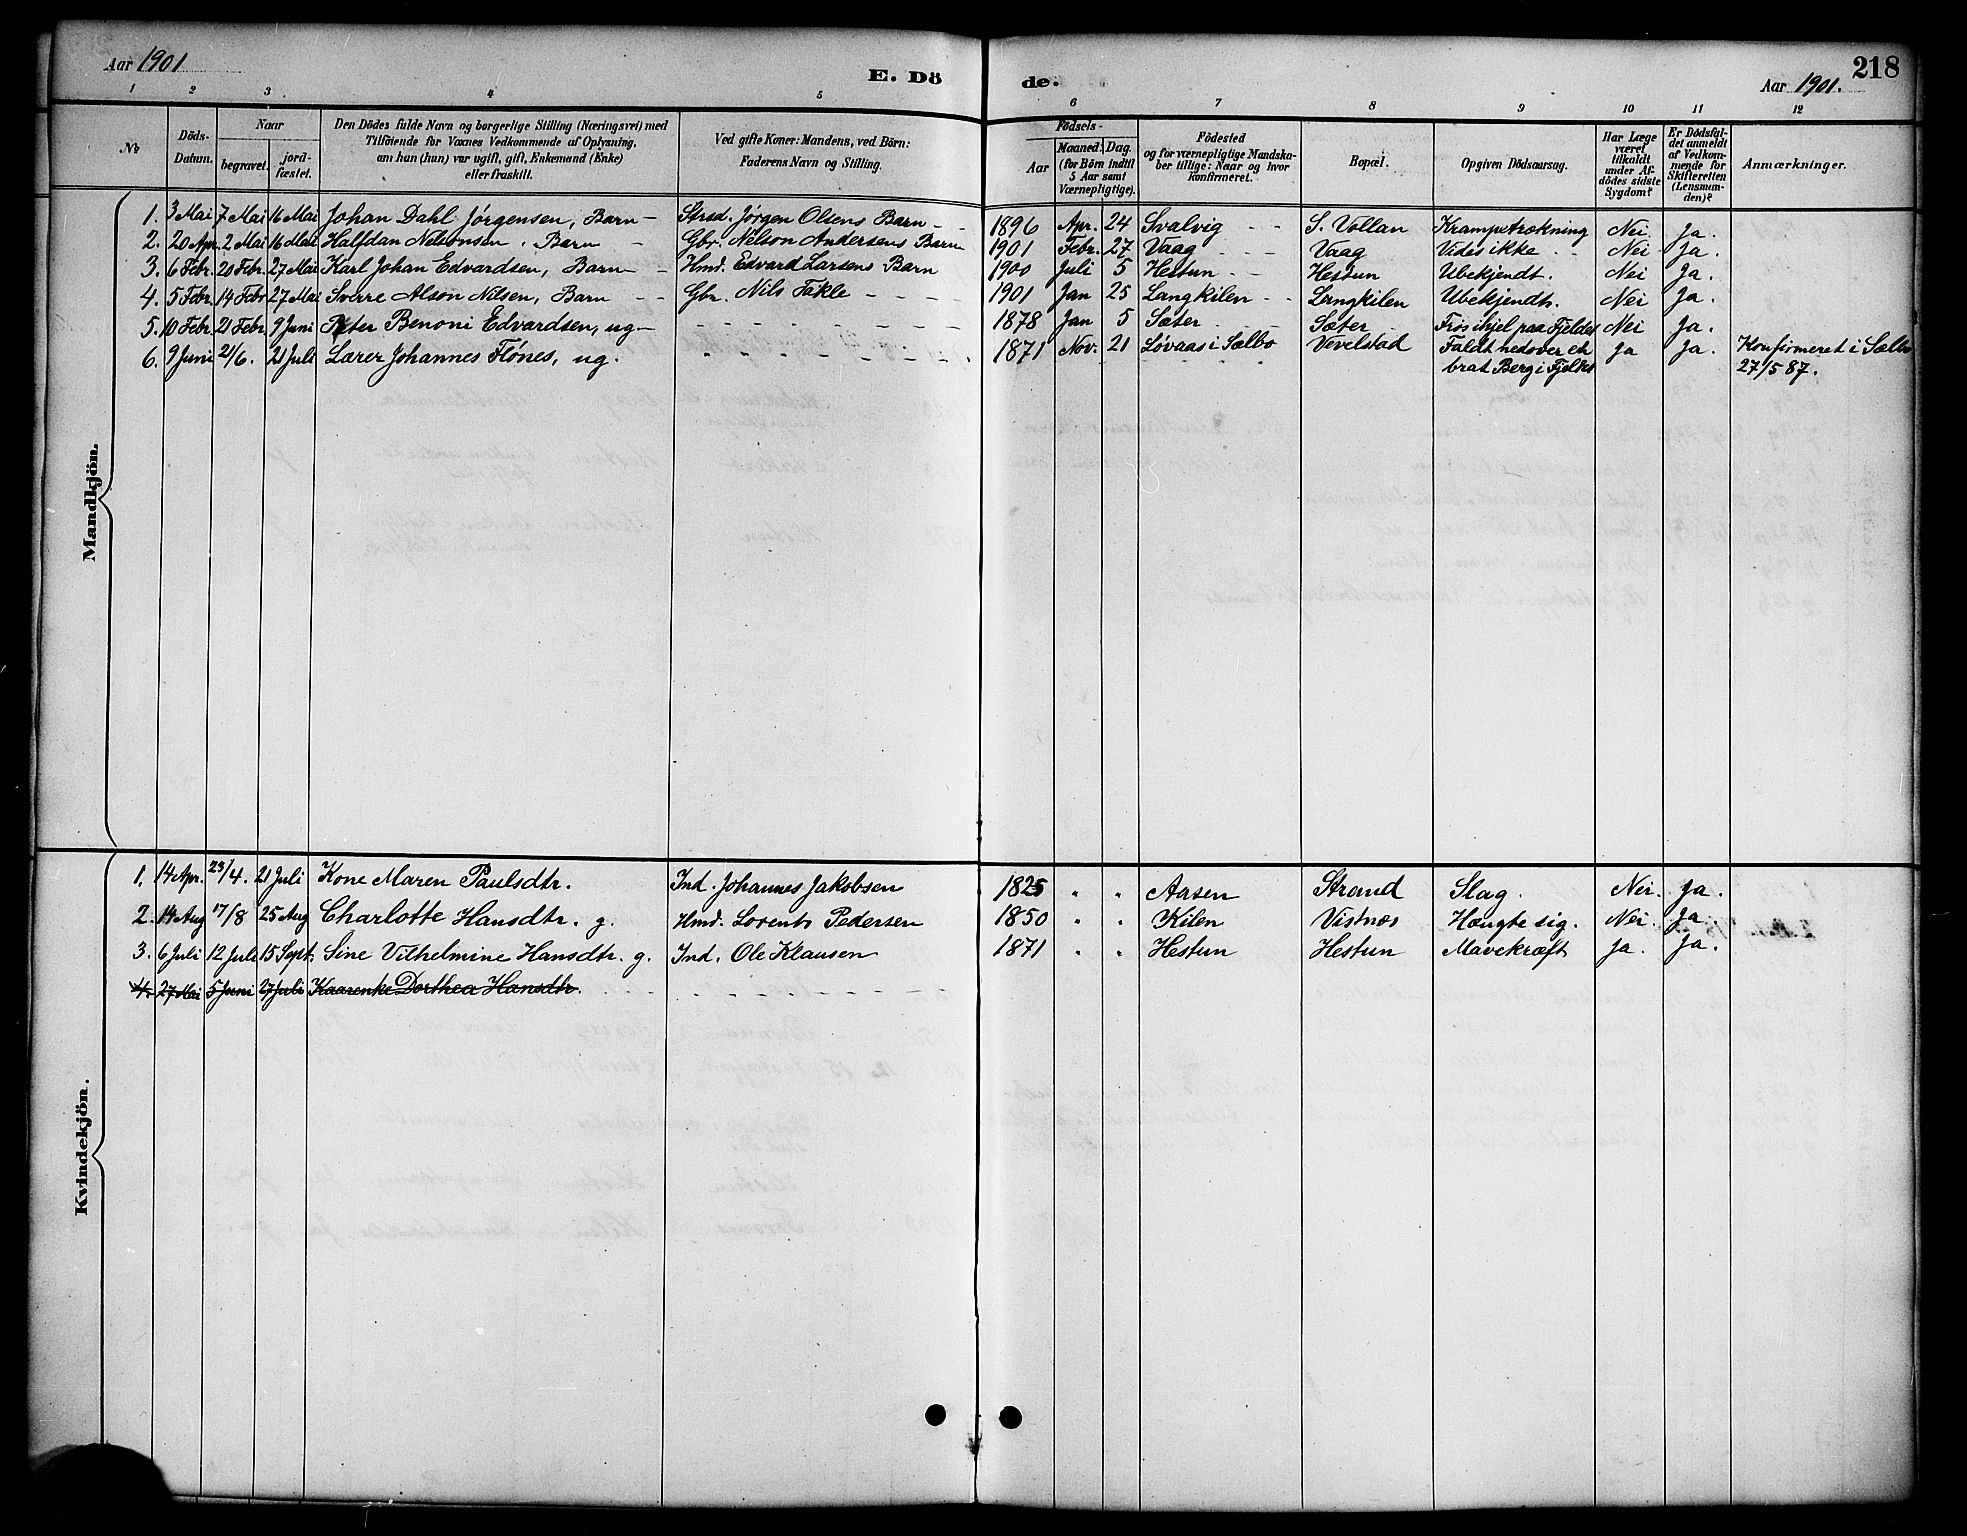 Aar 1901
E. Dö
de.
Aar 1901.
218
1 2 3 4 5 6 7 8 9 10 11 12
No
Döds-Datum.
Naar
begravet.
jord-fæstet.
Den Dödes fulde Navn og borgerlige Stilling (Næringsvei) med
Tilföiende for Voxnes Vedkommende af Oplysning,
om han (hun) var ugift, gift, Enkemand (Enke)
eller fraskilt.
Ved gifte Koner: Mandens, ved Börn:
Faderens Navn og Stilling.
Födsels-
Aar
Maaned: Dag.
(for Börn indtil
5 Aar samt
Værnepligtige).
Födested
og for værnepligtige Mandska-
ber tillige: Naar og hvor
konfirmeret.
Bopæl.
Opgiven Dödsaarsag.
Har Læge
været
tilkaldt
under Af-
dödes sidste
Sygdom?
Er Dödsfal-
det anmeldt
af Vedkom-
mende for
Skifteretten
(Lensman-
den)?
Anmærkninger.
Mandkjön.
1. 3 Mai 7 Mai 16 Mai Johan Dahl Jørgensen, Barn – Strsd. Jørgen Olsens Barn – – 1896 Apr. 24 Svalvig - - S. Vollan Krampetrækning Nei Ja.
2. 20 Apr. 2 Mai 16 Mai Halfdan Nelsonsen, Barn – Gbr. Nelson Andersens Barn 1901 Febr. 27 Vaag - - Vaag Vides ikke - - Nei Ja.
3. 6 Febr. 20 Febr. 27 Mai Karl Johan Edvardsen, Barn – – Hmd. Edvard Larsens Barn 1900 Juli 5 Hestun - - Hestun Ubekjendt. Nei Ja.
4. 5 Febr. 14 Febr 27 Mai Sverre Alson Nilsen, Barn – – Gbr. Nils Takle – – – – 1901 Jan 25 Langkilen - - Langkilen Ubekjendt. Nei Ja.
5. 10 Febr. 21 Febr. 9 Juni Peter Benoni Edvardsen, ug. – – – – – – 1878 Jan 5 Sæter - - Sæter Frøs ihjel paa Fjeldet Nei Ja.
6. 9 Juni 21/6. 21 Juli Lærer Johannes Flønes, ug. 1871 Nov. 21 Løvaas i Sælbo Vevelstad Faldt nedover et Ja Ja. Konfirmeret i Sælbo
brat Berg i Fjeldet 27/5 87.
Kvindekjön.
1. 14 Apr. 23/4. 21 Juli Kone Maren Paulsdtr. Ind. Johannes Jakobsen 1825 " " Aasen Strand Slag. Nei. Ja.
2. 14 Aug 17/8 25 Aug Charlotte Hansdtr. g. Hmd. Lorents Pedersen 1850 " " Kilen Vistnæs Hængte sig. Nei. Ja.
3. 6 Juli 12 Juli 15 Sept. Sine Vilhelmine Hansdtr. g. Ind. Ole Klausen 1871 " " Hestun Hestun Mavekræft Ja. Ja.
4. 27 Mai 5 Juni 27 Juli Kaarenke Dorthea Hansdtr.